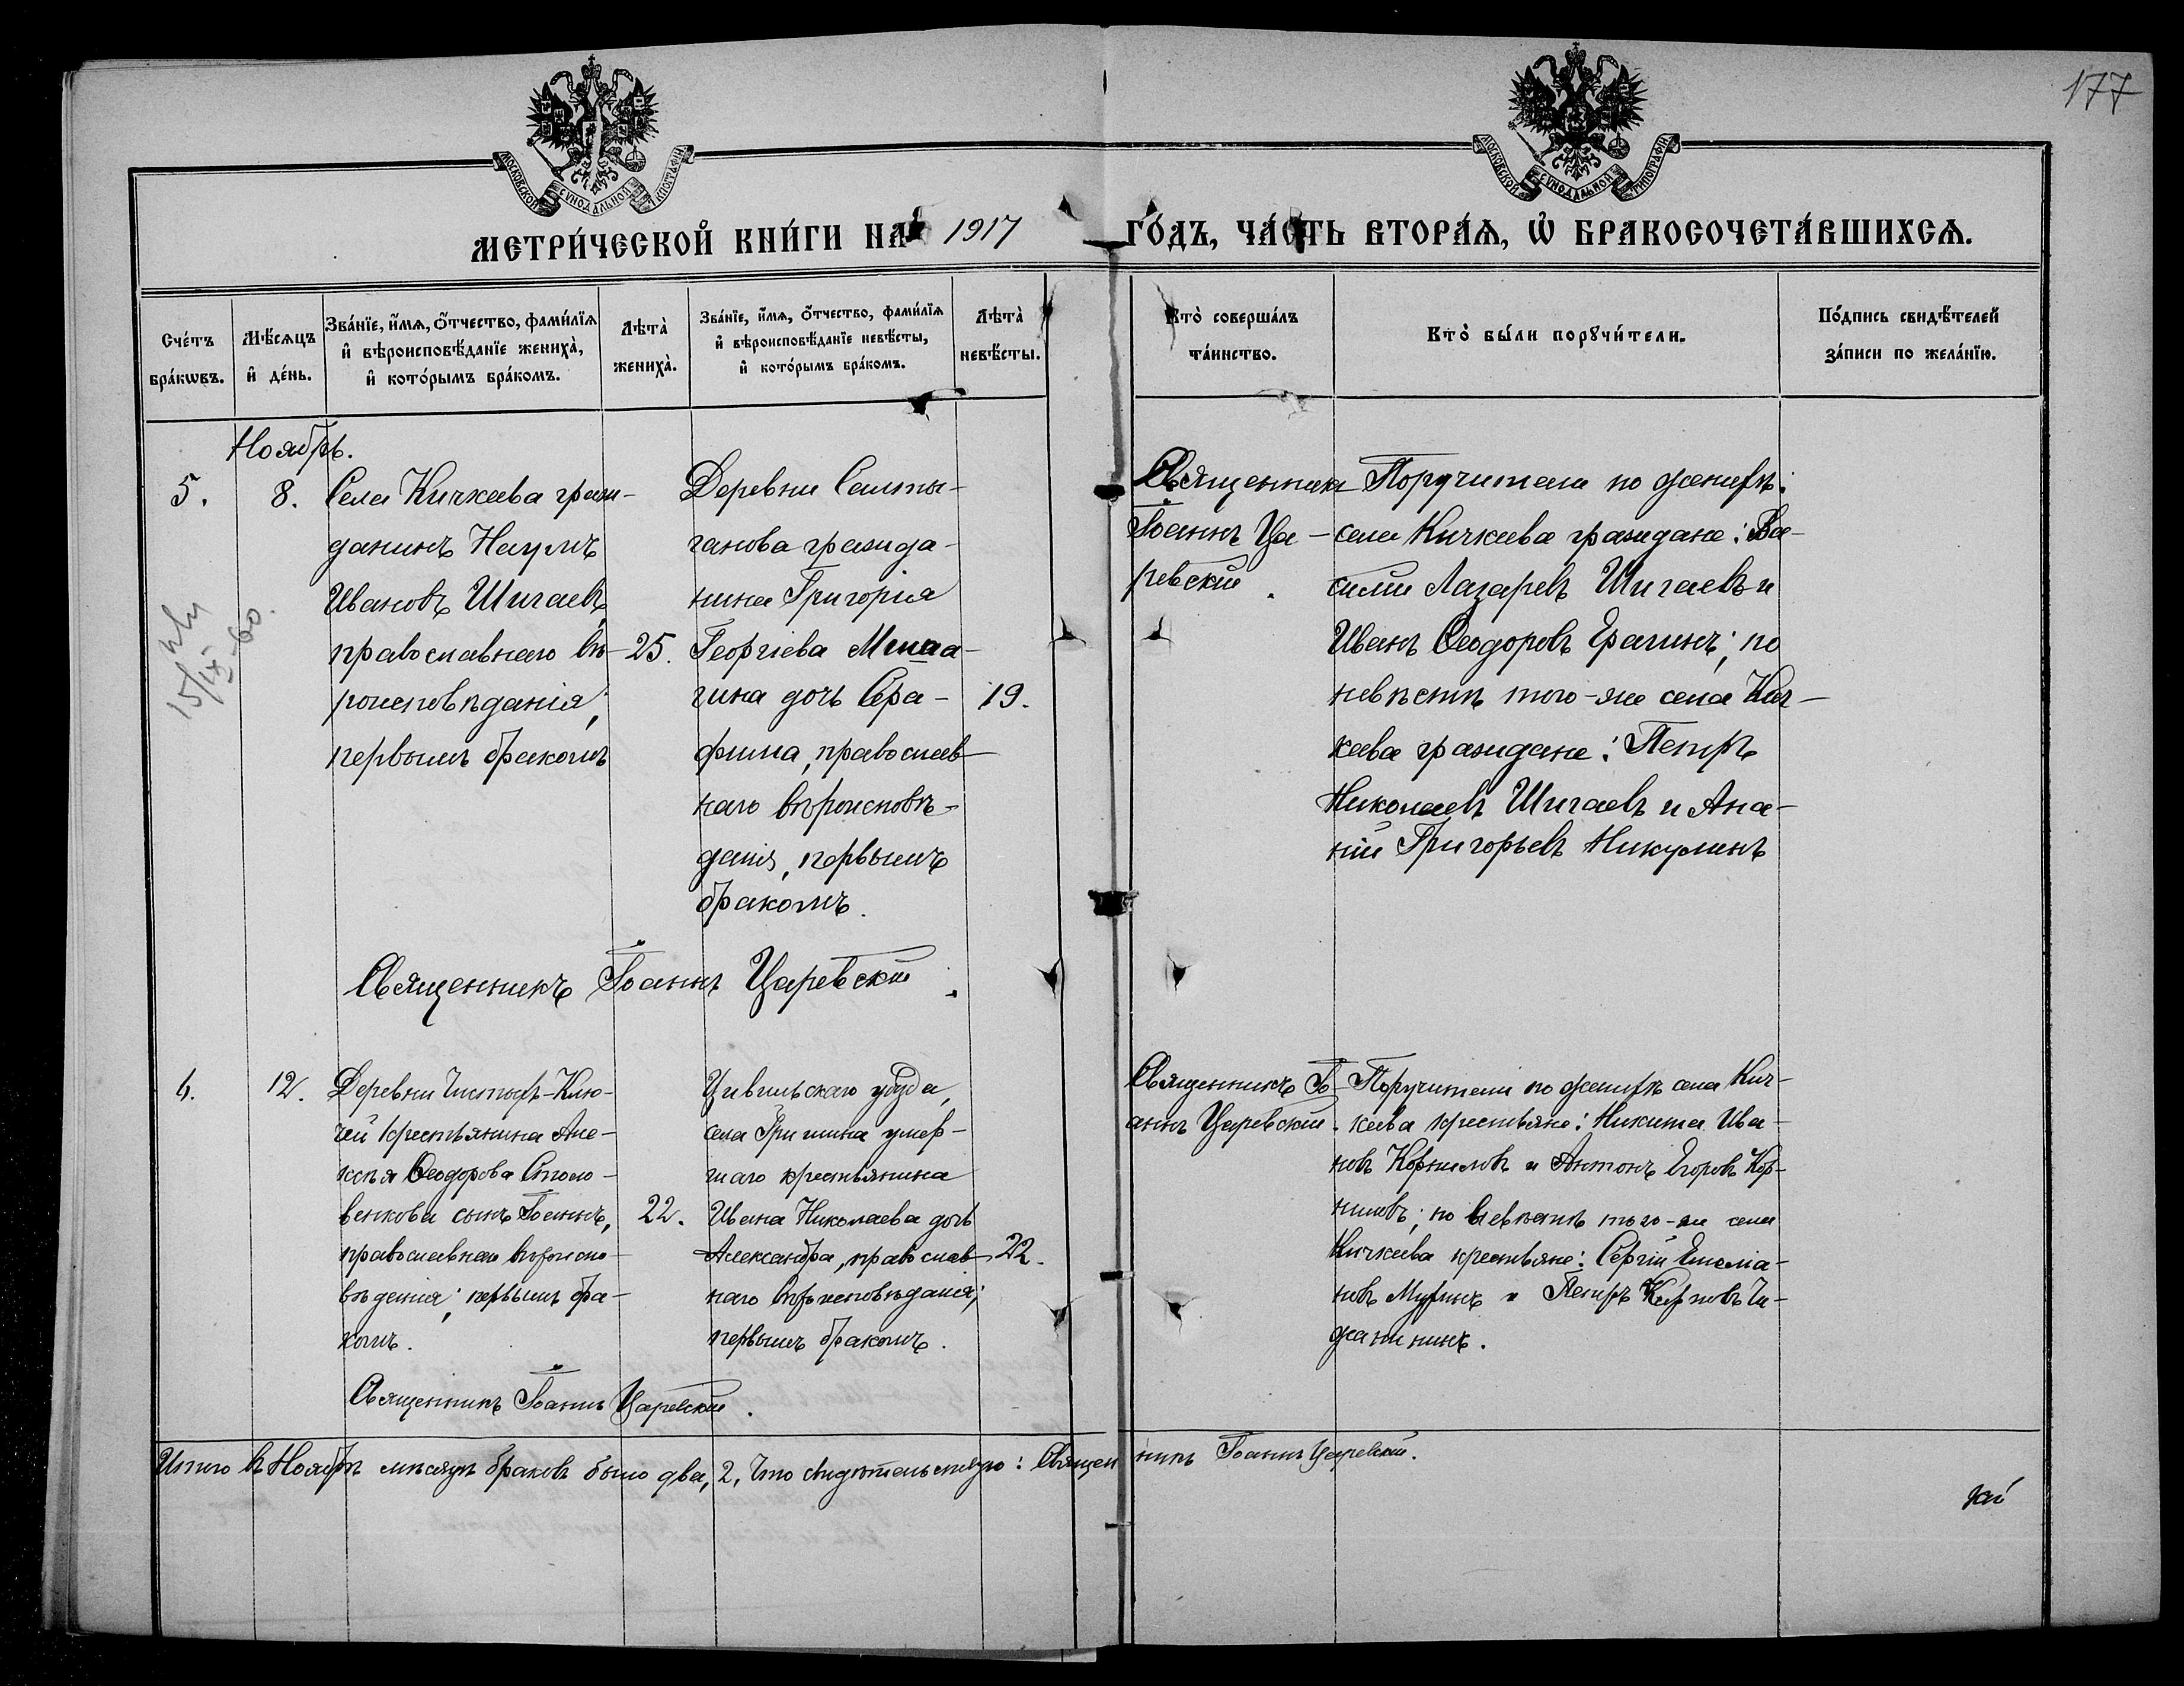 177
МОСКОВСКОЙ СѴНОДАЛЬНОЙ ТИПОГРАФІИ
МОСКОВСКОЙ СѴНОДАЛЬНОЙ ТИПОГРАФІИ
МЕТРИ́ЧЕСКОЙ КНИ́ГИ НА 1917 ГО́ДЪ, ЧА́СТЬ ВТОРА́Ѧ, Ѡ҆ БРАКОСОЧЕТА́ВШИХСѦ.
Сче́тъ бра́кѡвъ.
Мѣ́сѧцъ и҆ де́нь.
Зва́нїе, и҆́мѧ, ѻ҆́тчество, фами́лїѧ и҆ вѣроисповѣ́данїе жениха̀, и҆ кото́рымъ бра́комъ.
Лѣта̀ жениха̀.
Зва́нїе, и҆́мѧ, ѻ҆́тчество, фами́лїѧ и҆ вѣроисповѣ́данїе невѣ́сты, и҆ кото́рымъ бра́комъ.
Лѣта̀ невѣ́сты.
Кто̀ соверша́лъ та́инство.
Кто̀ бы́ли порꙋчи́тели.
По́дпись свидѣ́телей за́писи по жела́нїю.
Ноябрь.
5.
8.
Села Кичкеева граж-
данинъ Наумъ
Ивановъ Шигаевъ,
православнаго вѣ-
роисповѣданія,
первымъ бракомъ
25.
Деревни Салты-
ганова гражда-
нина Григорія
Георгіева Мишa-
гина дочь Сера-
фима, православ-
наго вѣроисповѣ-
данія, первымъ
бракомъ.
19.
Священникъ
Іоаннъ Ца-
ревскій.
Поручители по женихѣ:
села Кичкеева граждане: Ва-
силій Лазаревъ Шигаевъ и
Иванъ Ѳеодоровъ Ерагинъ; по
невѣстѣ того-же села Кич-
кеева граждане: Петръ
Николаевъ Шигаевъ и Ана-
ній Григорьевъ Никулинъ
15/IX-60.
Священникъ Іоаннъ Царевскій.
6.
12.
Деревни Чистыхъ-Клю-
чей крестьянина Але-
ксѣя Ѳеодорова Столо-
венкова сынъ Іоаннъ,
православнаго вѣроиспо-
вѣданія, первымъ бра-
комъ.
22.
Цивильскаго уѣзда,
села Гришина умер-
шаго крестьянина
Ивана Николаева дочь
Александра, православ-
наго вѣроисповѣданія;
первымъ бракомъ.
22.
Священникъ Іо-
аннъ Царевскій.
Поручители по женихѣ села Кич-
кеева крестьяне: Никита Ива-
новъ Корниловъ и Антонъ Егоровъ Кор-
ниловъ; по невѣстѣ того-же села
Кичкеева крестьяне: Сергій Емеліа-
новъ Муринъ и Петръ Карповъ Чи-
жанинъ.
Священникъ Іоаннъ Царевскій.
Итого въ Ноябрѣ мѣсяцѣ браковъ было два, 2, Что свидѣтельствую: Священникъ Іоаннъ Царевскій.